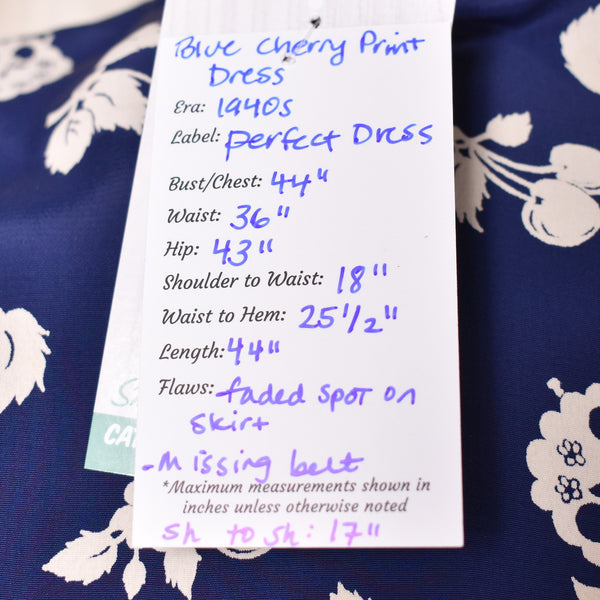 Blue Cherry Print
Dress
Era: 1940s
Label: perfect Dress
Bust/Chest: 44"
Waist: 36"
Hip: 43"
Shoulder to Waist: 18"
Waist to Hem: 25 1/2"
Length: 44"
Flaws: faded spot on
skirt
- Missing belt
*Maximum measurements shown in
inches unless otherwise noted
sh to sh: 17"